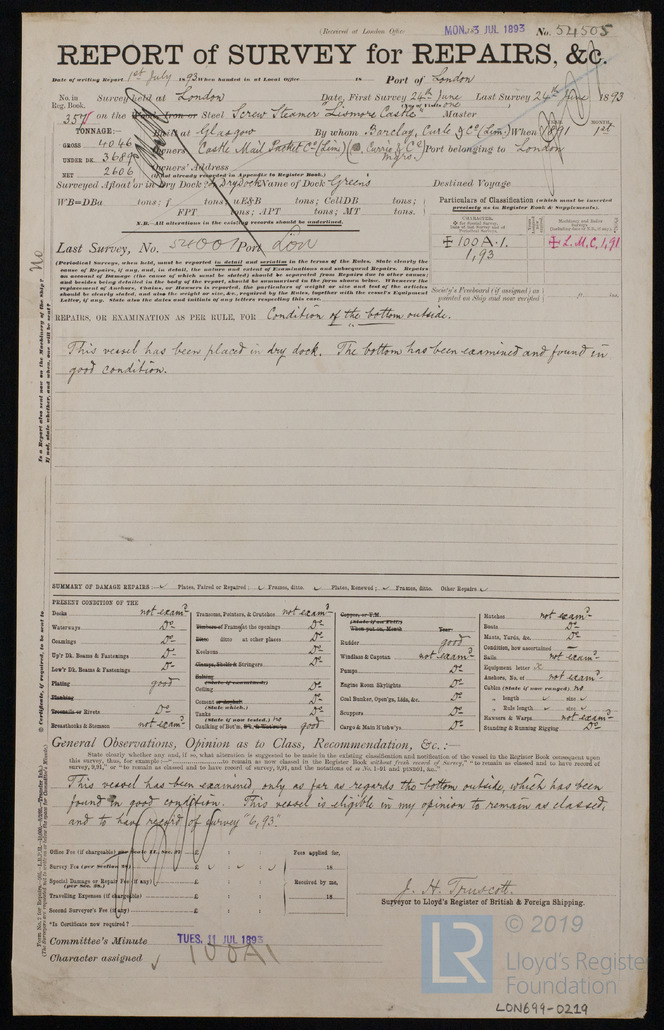 (Received at London Office
MON. 3 JUL 1893
No. 54505
REPORT of SURVEY for REPAIRS, &c.
Date of writing Report 1st July 1893 When handed in at Local Office 18 Port of London
No. in Reg. Book. Survey held at London Date, First Survey 24th June Last Survey 24th June 1893
357 on the Wood, Iron or Steel Screw Steamer "Lismore Castle" Master
TONNAGE:— Built at Glasgow By whom Barclay, Curle & Co (Lim.) When 1891 MONTH. 1st
GROSS 4046 Owners Castle Mail Packet Co (Lim.) (D. Currie & Co Mgrs.) Port belonging to London
UNDER DK. 3689 Owners' Address
NET 2606 (If not already recorded in Appendix to Register Book.)
Surveyed Afloat or in Dry Dock? Dry Dock Name of Dock Greens Destined Voyage
WB=DBa tons; f tons; uE&B tons; CellDB tons;
FPT tons; APT tons; MT tons.
N.B.—All alterations in the existing records should be underlined.
Particulars of Classification (which must be inserted precisely as in Register Book & Supplements).
CHARACTER.
✠ 100A.1. ✠ L.M.C. 1,91
1,93
Last Survey, No. 54001 Port Lon
(Periodical Surveys, when held, must be reported in detail and seriatim in the terms of the Rules. State clearly the
cause of Repairs, if any, and, in detail, the nature and extent of Examinations and subsequent Repairs. Repairs
on account of Damage (the cause of which must be stated) should be separated from Repairs due to other causes;
and besides being detailed in the body of the report, should be summarized in the form shown below. Whenever the
replacement of Anchors, Chains, or Hawsers is reported, the particulars of weight or size and test of the articles
should be clearly stated, and also the weight or size, &c., required by the Rules, together with the vessel's Equipment
Letter, if any. State also the dates and initials of any letters respecting this case.
Society's Freeboard (if assigned) as painted on Ship and now verified
REPAIRS, OR EXAMINATION AS PER RULE, FOR Condition of the bottom outside.
This vessel has been placed in dry dock. The bottom has been examined and found in
good condition.
Is a Report also sent now on the Machinery of the Ship? No
If not, state whether, and when, one will be sent?
SUMMARY OF DAMAGE REPAIRS:— Plates, Faired or Repaired; Frames, ditto. Plates, Renewed; Frames, ditto. Other Repairs
PRESENT CONDITION OF THE
Decks not examd
Waterways Do
Coamings Do
Up'r Dk. Beams & Fastenings Do
Low'r Dk. Beams & Fastenings Do
Plating good
Planking
Treenails or Rivets Do
Breasthooks & Stemson not examd
Transoms, Pointers, & Crutches not examd
Timbers of Frame at the openings Do
Ditto ditto at other places Do
Keelsons Do
Clamps, Shelfs & Stringers Do
Salting (State if examined)
Ceiling Do
Cement or Asphalt (State which.) Do
Tanks (State if now tested.) no Do
Caulking of Bot'm, good
Copper, or Y.M. (State if on Felt)
When put on, Month Year
Rudder good
Windlass & Capstan not examd
Pumps Do
Engine Room Skylights Do
Coal Bunker, Open'gs, Lids, &c. Do
Scuppers Do
Cargo & Main H'tchw'ys Do
Hatches not examd
Boats Do
Masts, Yards, &c. Do
Condition, how ascertained —
Sails not examd
Equipment letter
Anchors, No. of not examd
Cables (State if now ranged) no
" length size
" Rule length size
Hawsers & Warps not examd
Standing & Running Rigging Do
General Observations, Opinion as to Class, Recommendation, &c.:—
State clearly whether any, and if so, what alteration is suggested to be made in the existing classification and notification of the vessel in the Register Book consequent upon
this survey, thus, for example:— to remain as now classed in the Register Book without fresh record of Survey," "to remain as classed and to have record of
survey, 9,91," or "to remain as classed and to have record of survey, 9,91, and the notations of ss No. 1-91 and PSND91, &c."
This vessel has been examined, only as far as regards the bottom outside, which has been
found in good condition. This vessel is eligible in my opinion to remain as classed,
and to have record of survey "6,93".
Office Fee (if chargeable) £ : : Fees applied for,
Survey Fee (per Section 28) £ 18
Special Damage or Repair Fee (if any) (per Sec. 28.) £ : : Received by me,
Travelling Expenses (if chargeable) £ : : 18
Second Surveyor's Fee (if any) £ : :
*Is Certificate now required?
J. H. Truscott.
Surveyor to Lloyd's Register of British & Foreign Shipping.
Committee's Minute TUES. 11 JUL 1893
Character assigned 100A1
© 2019
LR
Lloyd's Register
Foundation
LON699-0219